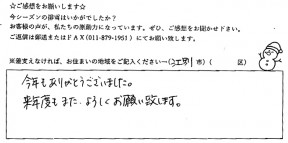 ☆ご感想をお願いします☆
今シーズンの除雪はいかがでしたか?
お客様の声が、私たちの原動力になっています。ぜひ、ご感想をお聞かせ下さい。
ご返信は郵送またはFAX(011-879-1951)にてお願い致します。
※差支えなければ、お住まいの地域をご記入ください→(江別 市)( 区)
今年もありがとうございました。
来年度もまた、よろしくお願い致します。